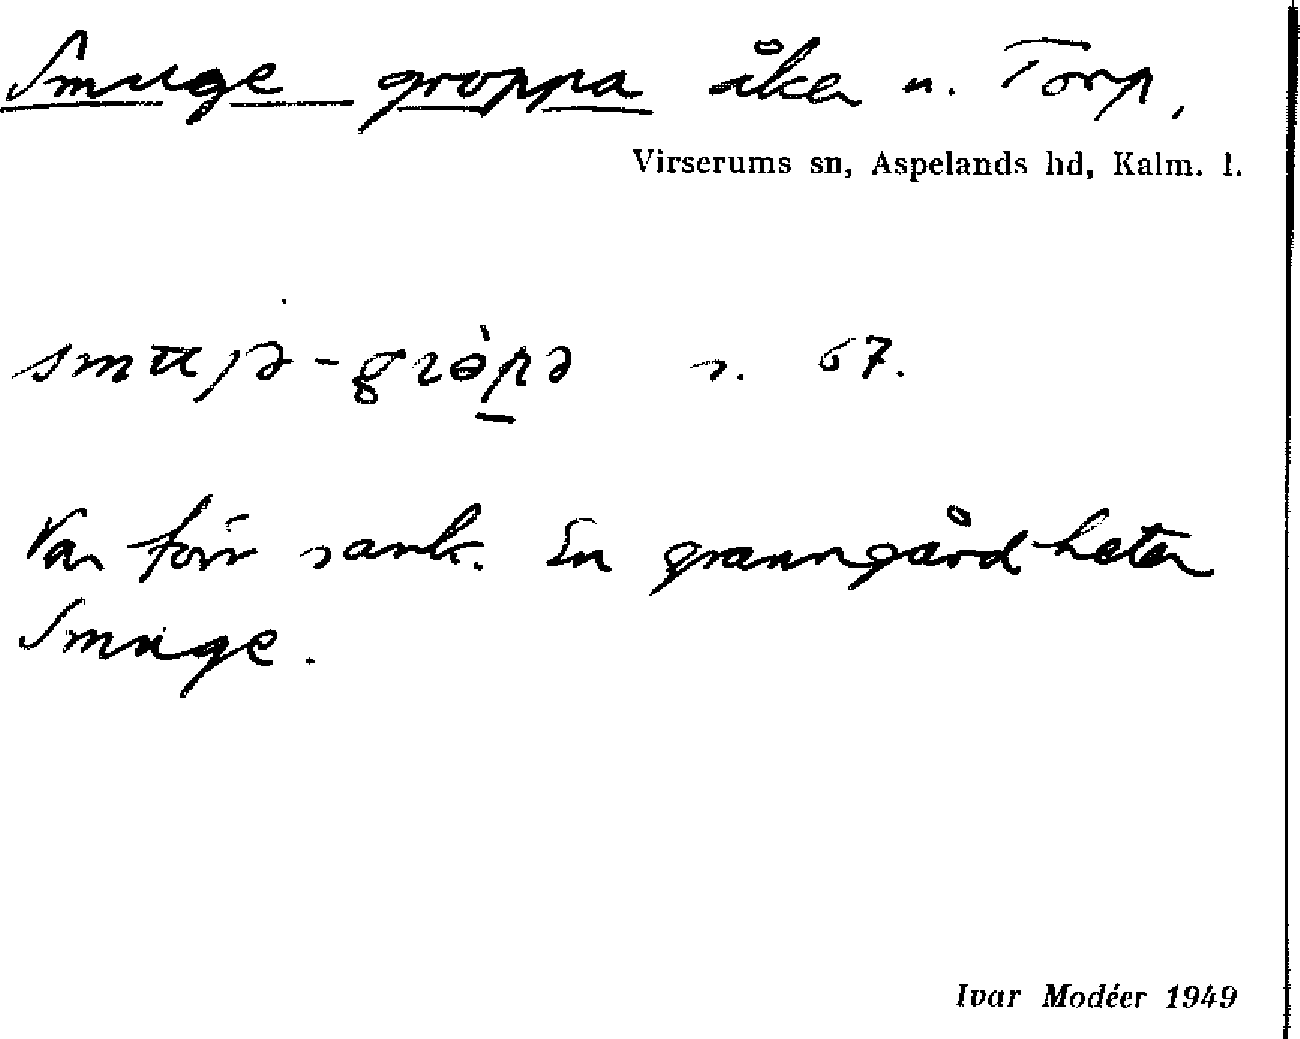 Smuge groppa åker u. Torp,
Virserums sn, Aspelands hd, Kalm. l.
s. 67.
Var förr sank. En granngård heter
Smuge.
Ivar Modéer 1949